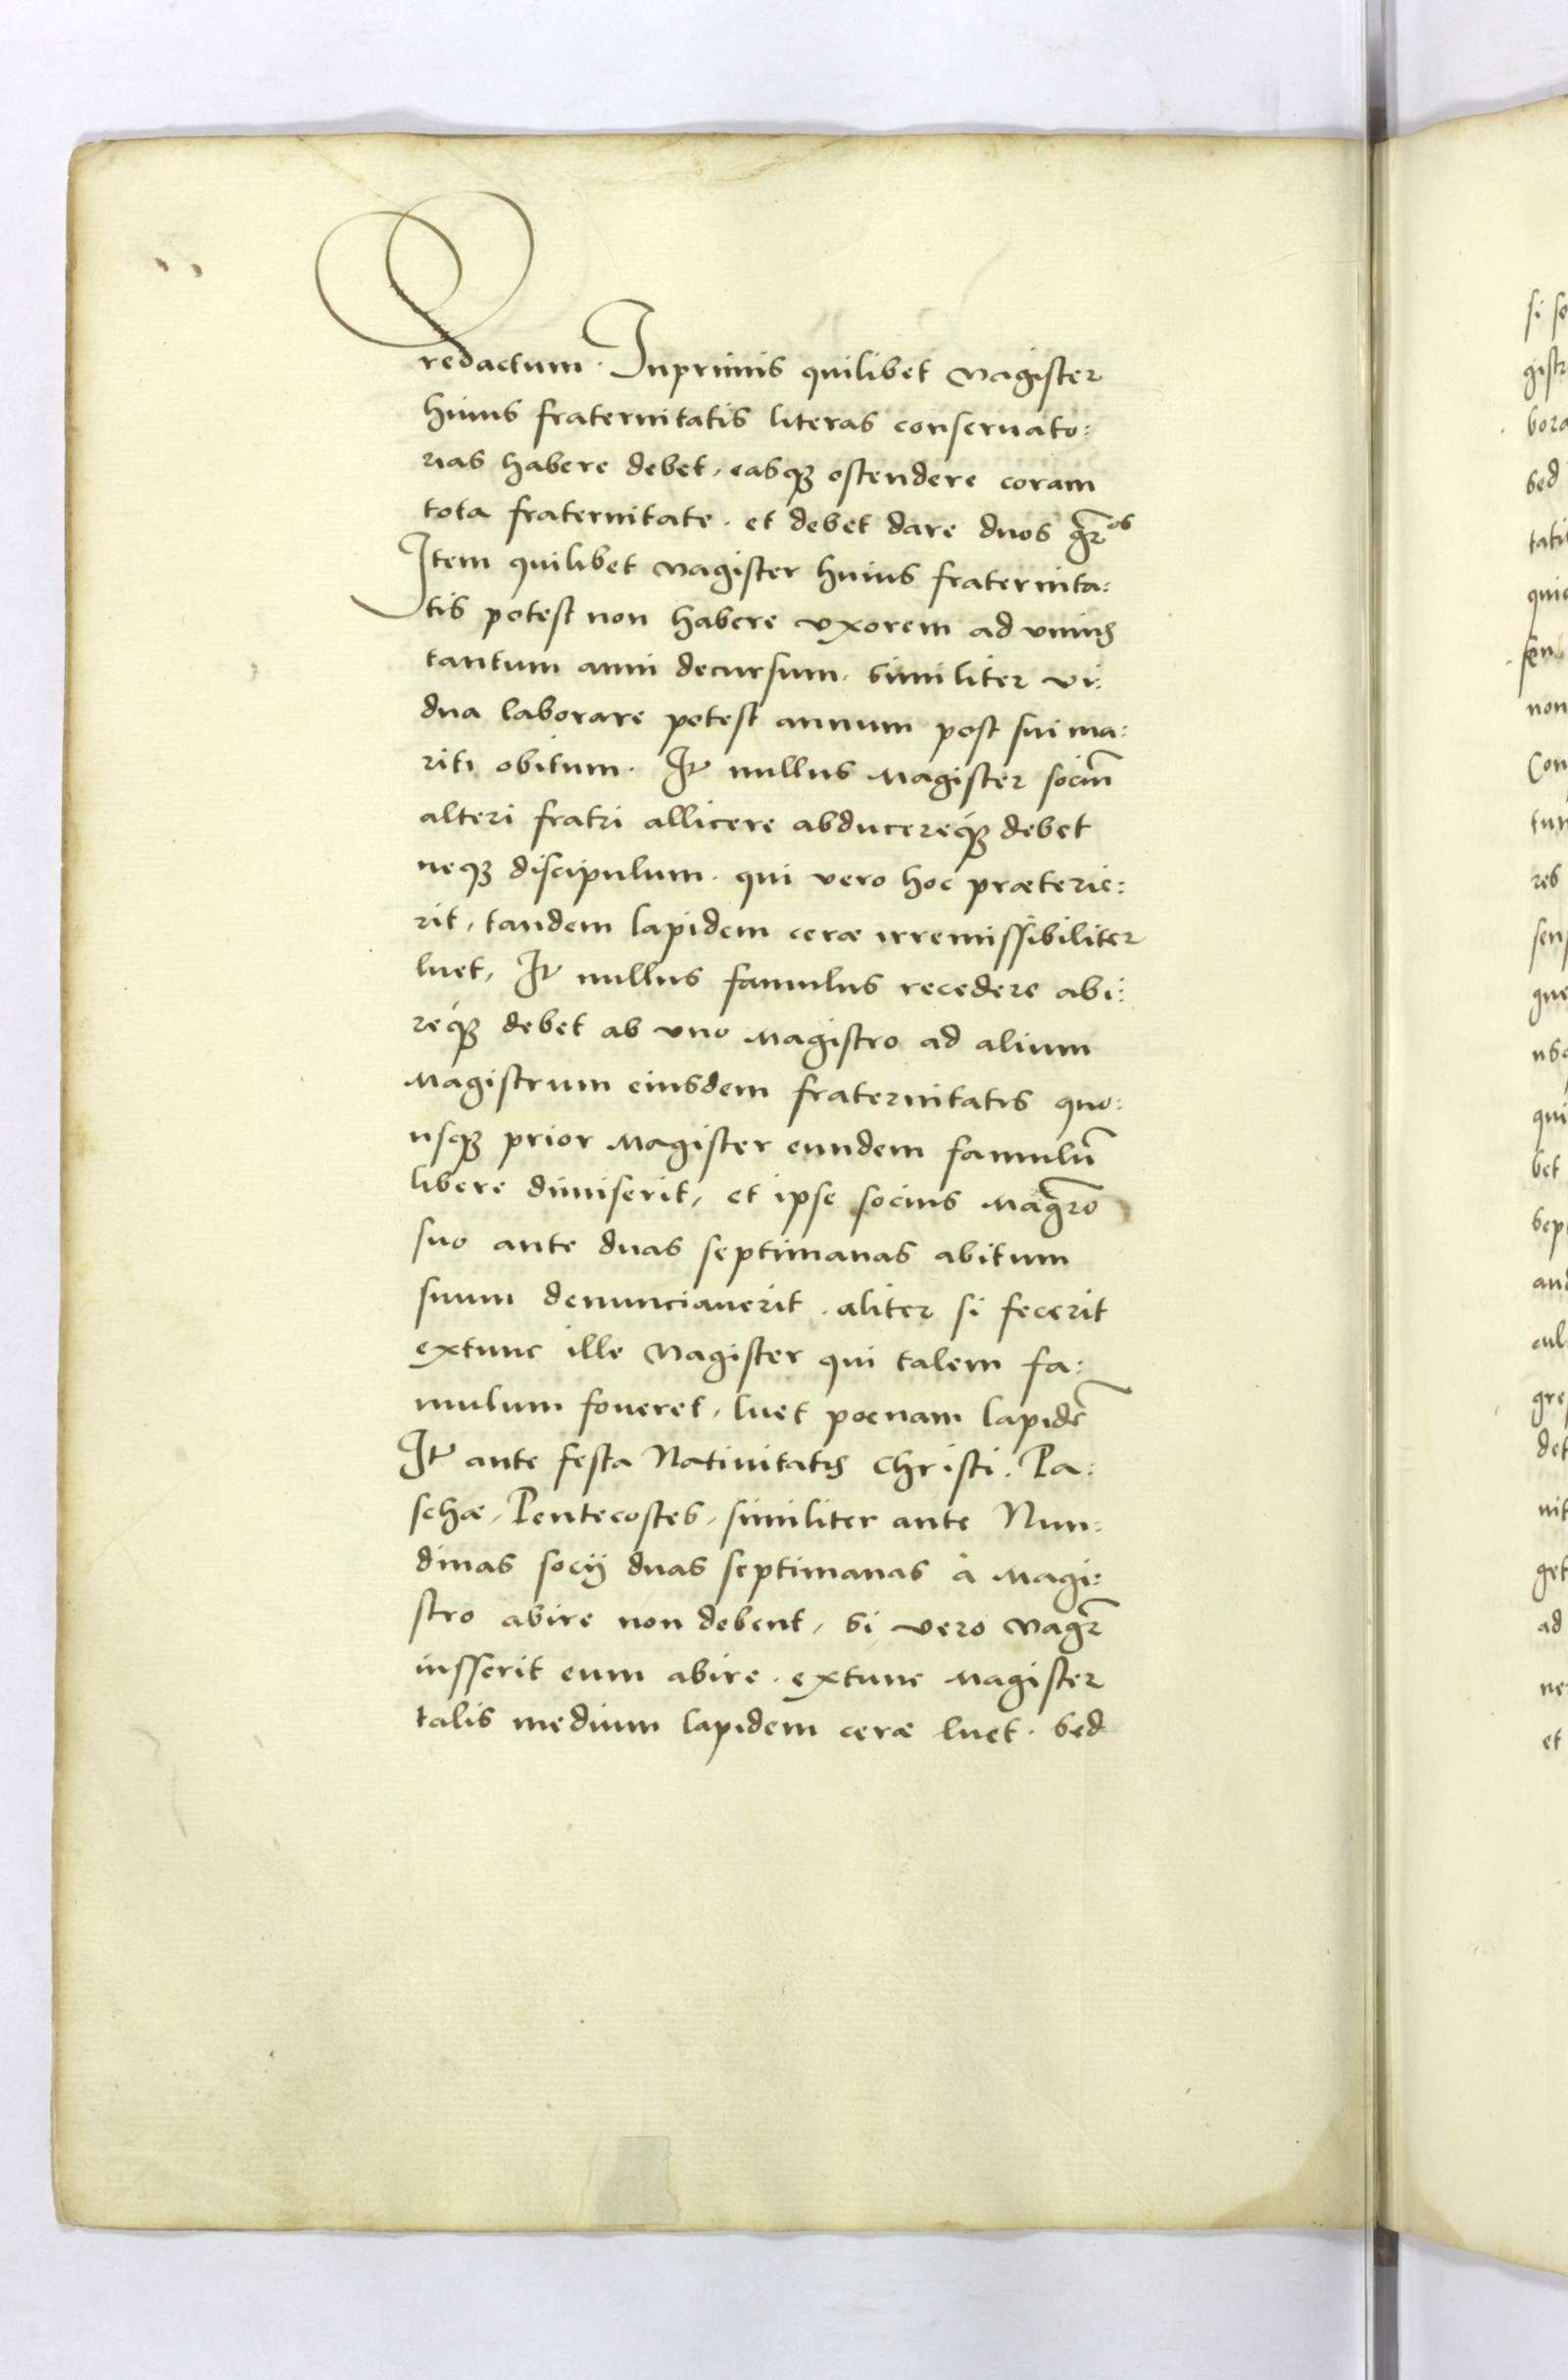 redactum. Inprimis quilibet Magister
huius fraternitatis literas conseruato:
rias habere debet, easqꝫ ostendere coram
tota fraternitate. et debet dare duos gr̃os
Item quilibet Magister huius fraternita:
tis potest non habere vxorem ad vnius
tantum anni decursum. similiter vi:
dua laborare potest annum post sui ma:
riti obitum. It nullus Magister sociũ
alteri fratri allicere abducereqꝫ debet
neqꝫ discipulum. qui vero hoc præterie:
rit, tandem lapidem ceræ irremissibiliter
luet, It nullus famulus recedere abi:
reqꝫ debet ab vno Magistro ad alium
Magistrum eiusdem fraternitatis quo:
usqꝫ prior Magister eundem famulũ
libere dimiserit, et ipse socius Magr̃o
suo ante duas septimanas abitum
suum denunciauerit. aliter si fecerit
extunc ille Magister qui talem fa:
mulum foueret, luet poenam lapidẽ
It ante festa Natiuitatis Christi. Pa:
schæ, Pentecostes, similiter ante Nun:
dinas socij duas septimanas à Magi:
stro abire non debent, si vero Magr̃
iusserit eum abire. extunc Magister
talis medium lapidem ceræ luet. sed
si se
gistr
bora
sed
tati
quic
non
Con
tun
res
sen
que
qui
bet
sep
and
cul
gre
det
nit
get
ad
ne
et